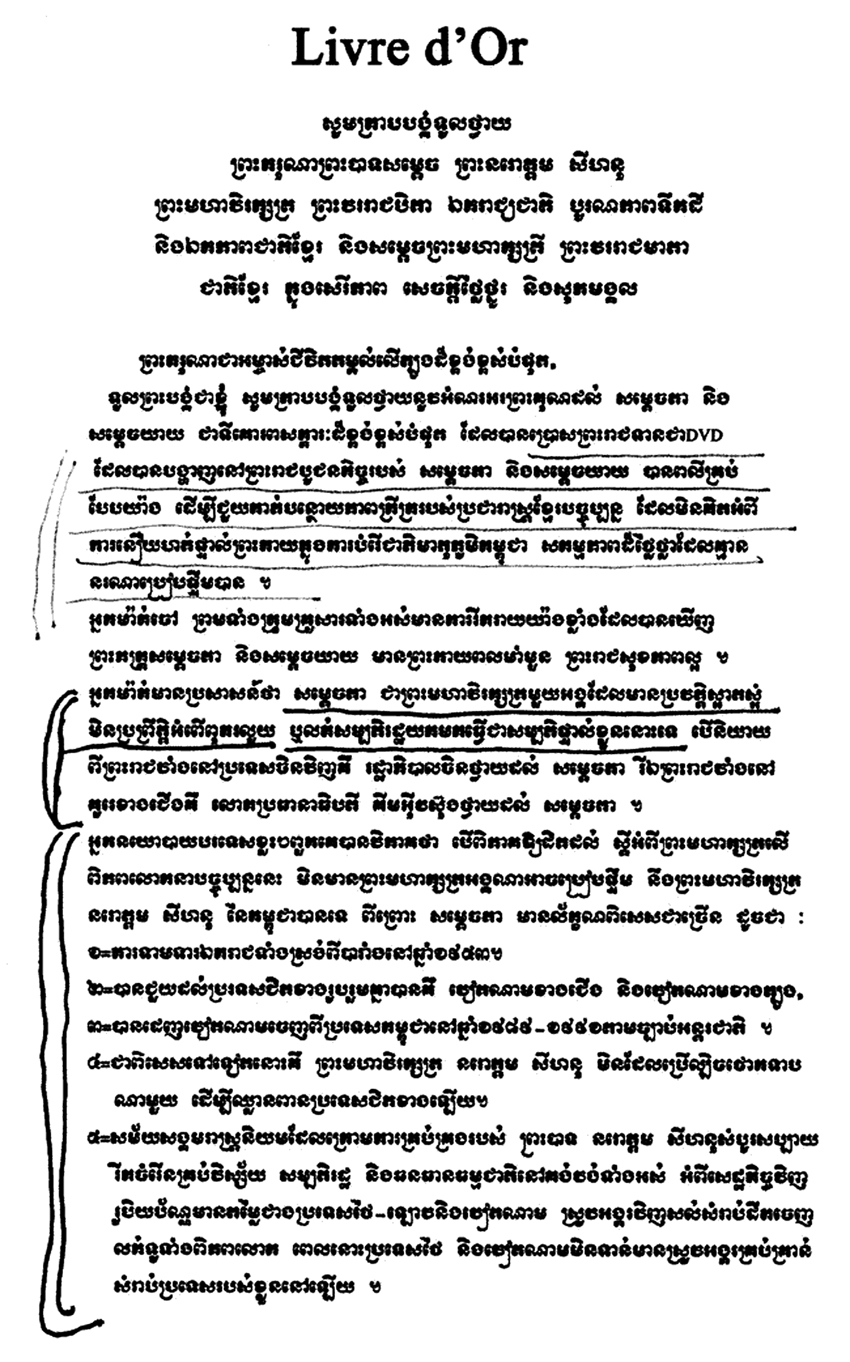 Livre d'Or
សូមក្រាបបង្គំទូលថ្វាយ
ព្រះករុណាព្រះបាទសម្តេច ព្រះនរោត្តម សីហនុ
ព្រះមហាវីរក្សត្រ ព្រះវររាជបិតា ឯករាជ្យជាតិ បូរណភាពទឹកដី
និងឯកភាពជាតិខ្មែរ និងសម្តេចព្រះមហាក្សត្រី ព្រះវររាជមាតា
ជាតិខ្មែរ ក្នុងសេរីភាព សេចក្តីថ្លៃថ្នូរ និងសុភមង្គល
ព្រះករុណាជាអម្ចាស់ជីវិតតម្កល់លើត្បូងដ៏ខ្ពង់ខ្ពស់បំផុត,
ទូលព្រះបង្គំជាខ្ញុំ សូមក្រាបបង្គំទូលថ្វាយនូវអំណរអរព្រះគុណដល់ សម្តេចតា និង
សម្តេចយាយ ជាទីគោរពសក្ការៈដ៏ខ្ពង់ខ្ពស់បំផុត ដែលបានប្រោសព្រះរាជទានជាDVD
ដែលបានបង្ហាញនៅព្រះរាជបូជនកិច្ចរបស់ សម្តេចតា និងសម្តេចយាយ បានពលីគ្រប់
បែបយ៉ាង ដើម្បីជួយកាត់បន្ថយភាពក្រីក្ររបស់ប្រជារាស្ត្រខ្មែរបច្ចុប្បន្ន ដែលមិនគិតអំពី
ការនឿយហត់ផ្ទាល់ព្រះកាយក្នុងការបំរើជាតិមាតុភូមិកម្ពុជា សកម្មភាពដ៏ថ្លៃថ្លាដែលគ្មាន
នរណាប្រៀបផ្ទឹមបាន ។
អ្នកម៉ាក់ចៅ ព្រមទាំងក្រុមគ្រួសារទាំងអស់មានការរីករាយយ៉ាងខ្លាំងដែលបានឃើញ
ព្រះភក្ត្រសម្តេចតា និងសម្តេចយាយ មានព្រះកាយពលមាំមួន ព្រះរាជសុខភាពល្អ ។
អ្នកម៉ាក់មានប្រសាសន៍ថា សម្តេចតា ជាព្រះមហាវីរក្សត្រមួយអង្គដែលមានប្រវត្តិស្អាតស្អំ
មិនប្រព្រឹត្តិអំពើពុករលួយ ឬលក់សម្បត្តិរដ្ឋយកមកធ្វើជាសម្បត្តិផ្ទាល់ខ្លួននោះទេ បើនិយាយ
ពីព្រះរាជវាំងនៅប្រទេសចិនវិញគឺ រដ្ឋាភិបាលចិនថ្វាយដល់ សម្តេចតា រីឯព្រះរាជវាំងនៅ
កូរេខាងជើងគឺ លោកប្រធានាធិបតី គីមអ៊ីវស៊ុងថ្វាយដល់ សម្តេចតា ។
អ្នកនយោបាយបរទេសខ្លះ៤ពួកគេបានវិភាគថា បើពិភាគឱ្យដិតដល់ ស្តីអំពីព្រះមហាក្សត្រលើ
ពិភពលោកនាបច្ចុប្បន្ននេះ មិនមានព្រះមហាក្សត្រអង្គណាអាចប្រៀបផ្ទឹម នឹងព្រះមហាវីរក្សត្រ
នរោត្តម សីហនុ នៃកម្ពុជាបានទេ ពីព្រោះ សម្តេចតា មានល័ក្ខណពិសេសជាច្រើន ដូចជា :
១=ការទាមទារឯករាជទាំងស្រុងពីបារាំងនៅឆ្នាំ១៩៥៣។
២=បានជួយដល់ប្រទេសជិតខាងរួបរួមគ្នាបានគឺ វៀតណាមខាងជើង និងវៀតណាមខាងត្បូង,
៣=បានដេញវៀតណាមចេញពីប្រទេសកម្ពុជានៅឆ្នាំ១៩៨៩-១៩៩១តាមច្បាប់អន្តរជាតិ ។
៤=ជាពិសេសទៅទៀតនោះគឺ ព្រះមហាវីរក្សត្រ នរោត្តម សីហនុ មិនដែលប្រើល្បិចថោកទាប
ណាមួយ ដើម្បីឈ្លានពានប្រទេសជិតខាងឡើយ។
៥=សម័យសង្គមរាស្ត្រនិយមដែលក្រោមការគ្រប់គ្រងរបស់ ព្រះបាទ នរោត្តម សីហនុសំបូរសប្បាយ
រីកចំរើនគ្រប់វិស្ស័យ សម្បត្តិរដ្ឋ និងធនធានធម្មជាតិនៅគង់វង់ទាំងអស់ អំពីសេដ្ឋកិច្ចវិញ
រូបិយប័ណ្ឌមានតម្លៃជាងប្រទេសថៃ-ឡាវនិងវៀតណាម ស្រូវអង្ករវិញសល់សំរាប់ដឹកចេញ
លក់ទូទាំងពិភពលោក ពេលនោះប្រទេសថៃ និងវៀតណាមមិនទាន់មានស្រូវអង្ករគ្រប់គ្រាន់
សំរាប់ប្រទេសរបស់ខ្លួននៅឡើយ ។